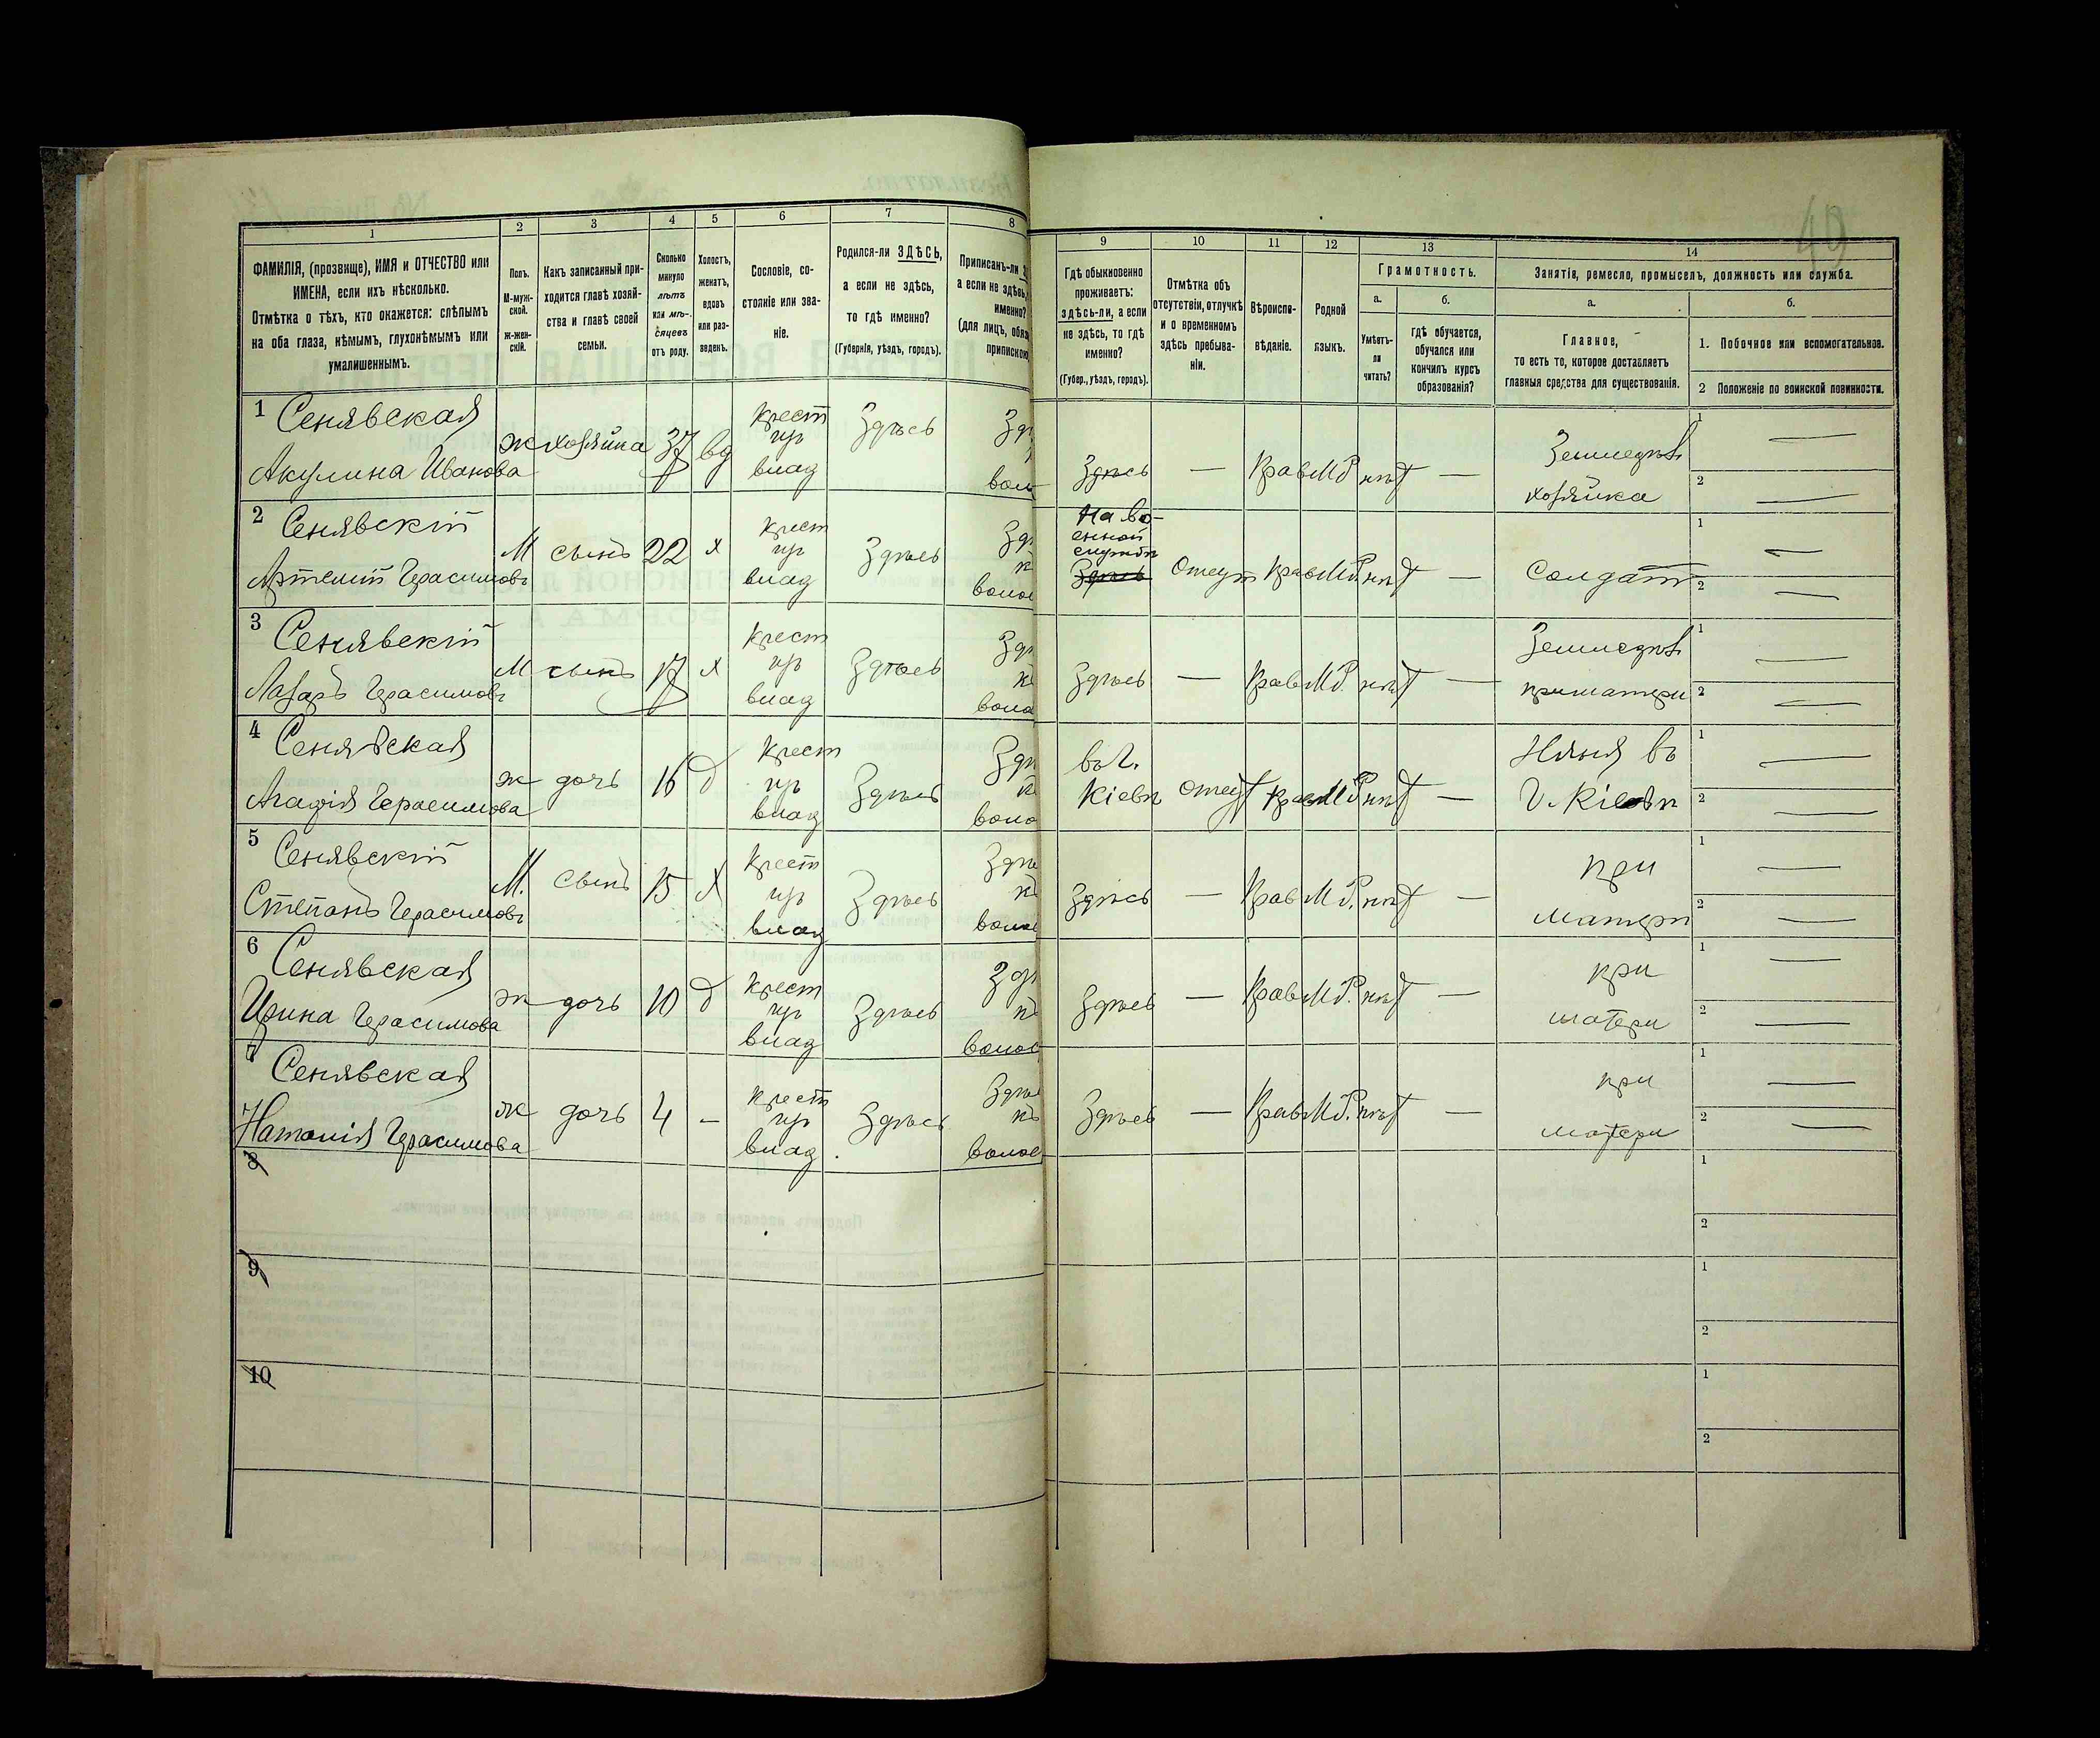 49
1 2 3 4 5 6 7 8 9 10 11 12 13 14
ФАМИЛІЯ, (прозвище), ИМЯ и ОТЧЕСТВО или
ИМЕНА, если ихъ нѣсколько.
Отмѣтка о тѣхъ, кто окажется: слѣпымъ
на оба глаза, нѣмымъ, глухонѣмымъ или
умалишеннымъ.
Полъ.
М-муж-
ской.
ж-жен-
скій.
Какъ записанный при-
ходится главѣ хозяй-
ства и главѣ своей
семьи.
Сколько
минуло
лѣтъ
или мѣ-
сяцевъ
отъ роду.
Холостъ,
женатъ,
вдовъ
или раз-
веденъ.
Сословіе, со-
стояніе или зва-
ніе.
Родился-ли ЗДѢСЬ,
а если не здѣсь,
то гдѣ именно?
(Губернія, уѣздъ, городъ).
Приписанъ-ли
а если не здѣсь,
именно?
(для лицъ,
припискою
Гдѣ обыкновенно
проживаетъ:
здѣсь-ли, а если
не здѣсь, то гдѣ
именно?
(Губер., уѣздъ, городъ).
Отмѣтка объ
отсутствіи, отлучкѣ
и о временномъ
здѣсь пребыва-
ніи.
Вѣроиспо-
вѣданіе.
Родной
языкъ.
Грамотность.
а.
Умѣетъ-
ли
читать?
б.
гдѣ обучается,
обучался или
кончилъ курсъ
образованія?
Занятіе, ремесло, промыселъ, должность или служба.
а.
Главное,
то есть то, которое доставляетъ
главныя средства для существованія.
б.
1. Побочное или вспомогательное.
2 Положеніе по воинской повинности.
1 Сенявская
Акулина Иванова
ж хозяйка 37 вд
крест
изъ
влад
Здѣсь
Здѣсь — Прав М.Р. нѣтъ —
Земледѣл
хозяйка
1 —
2 —
2 Сенявскій
Артемій Герасимовъ
М сынъ 22 х
крест
изъ
влад
Здѣсь
На во-
енной
службѣ
Здѣсь
Отсут Прав М.Р. нѣтъ —
Солдатъ
1 —
2 —
3 Сенявскій
Лазарь Герасимовъ
М сынъ 17 х
крест
изъ
влад
Здѣсь
Здѣсь — Прав М.Р. нѣтъ —
Земледѣл
при матери
1 —
2 —
4 Сенявская
Агафія Герасимова
ж дочь 16 д
крест
изъ
влад
Здѣсь
въ г.
Кіевѣ
Отсут Прав М.Р. нѣтъ —
Няня въ
г. Кіевѣ
1 —
2 —
5 Сенявскій
Степанъ Герасимовъ
М. сынъ 15 х
крест
изъ
влад
Здѣсь
Здѣсь — Прав М.Р. нѣтъ —
при
матери
1 —
2 —
6 Сенявская
Ирина Герасимова
ж дочь 10 д
крест
изъ
влад
Здѣсь
Здѣсь — Прав М.Р. нѣтъ —
при
матери
1 —
2 —
7 Сенявская
Наталія Герасимова
ж дочь 4 —
крест
изъ
влад.
Здѣсь
Здѣсь — Прав М.Р. нѣтъ —
при
матери
1 —
2 —
8
1
2
9
1
2
10
1
2